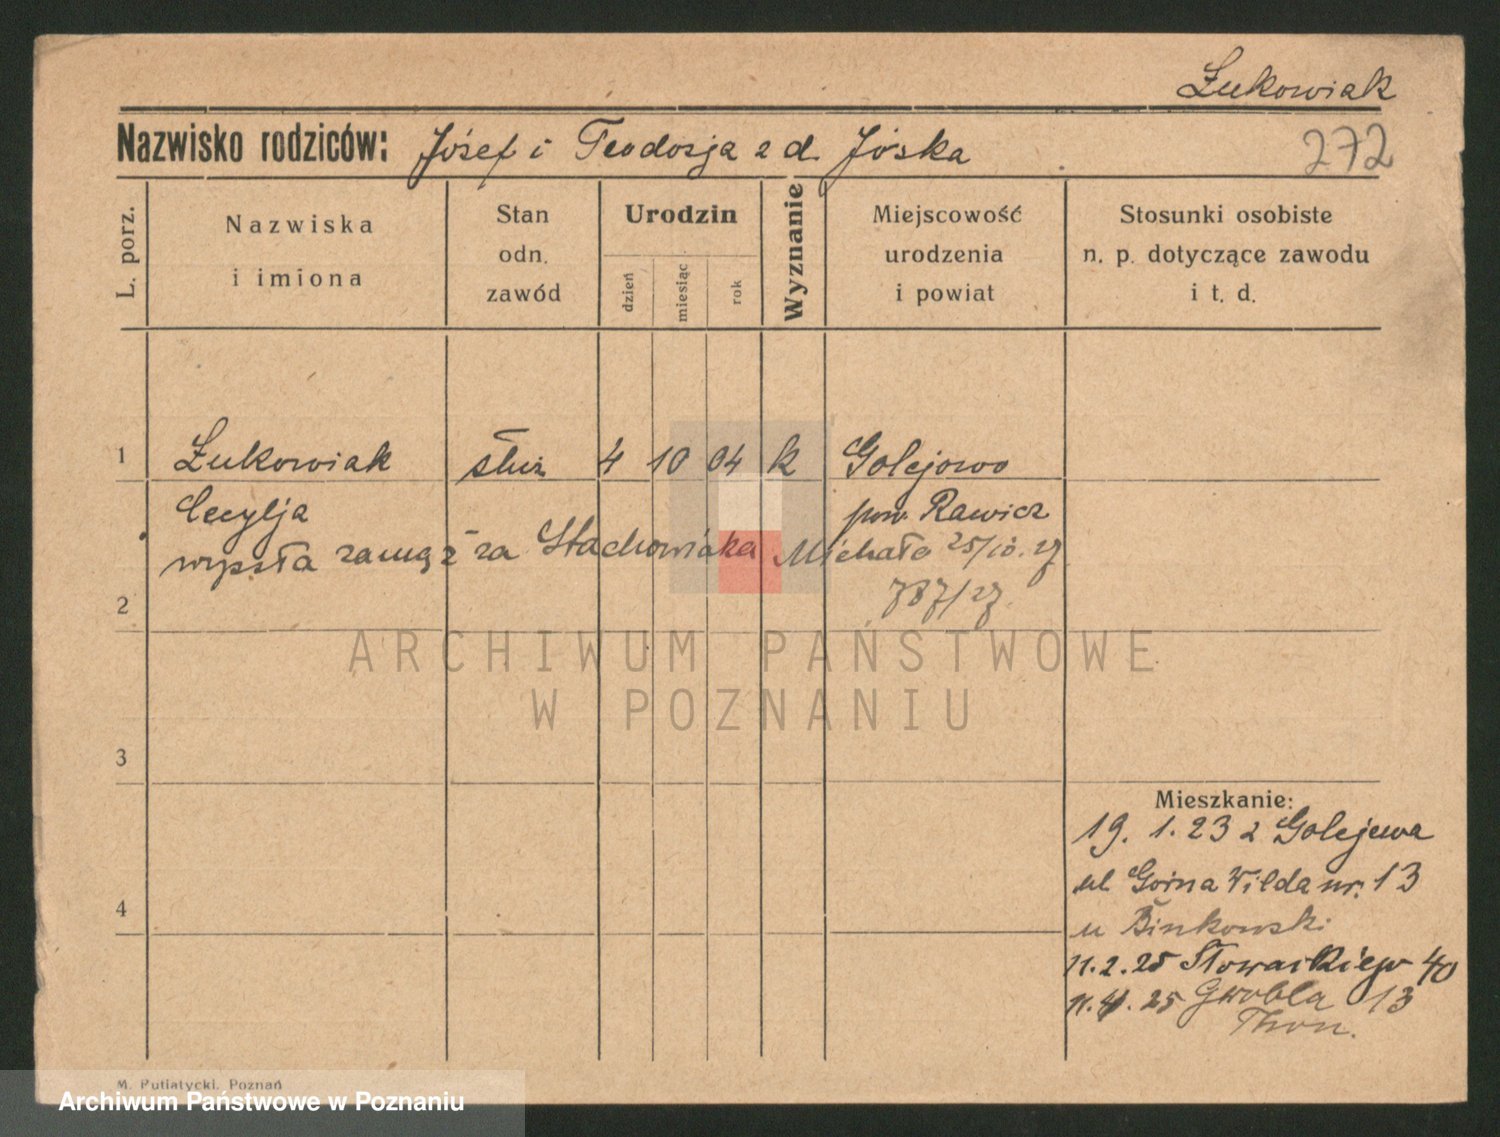 Łukowiak
Nazwisko rodziców: Józef i Teodozja z d. Jóska
272
L. porz.
Nazwiska
i imiona
Stan
odn.
zawód
Urodzin
dzień
miesiąc
rok
Wyznanie
Miejscowość
urodzenia
i powiat
Stosunki osobiste
n. p. dotyczące zawodu
i t. d.
1 Łukowiak służ 4 10 04 k Golejewo
Cecylja pow. Rawicz
wyszła zamąż za Stachowiaka Michała 25/10.27
2 787/27.
ARCHIWUM PAŃSTWOWE
W POZNANIU
3
Mieszkanie:
19. 1. 23 z Golejewa
ul Górna Wilda nr. 13
4
u Binkowski
11. 2. 25 Słowackiego 40
11. 4. 25 Grobla 13
Thon.
M. Putiatycki, Poznań
Archiwum Państwowe w Poznaniu